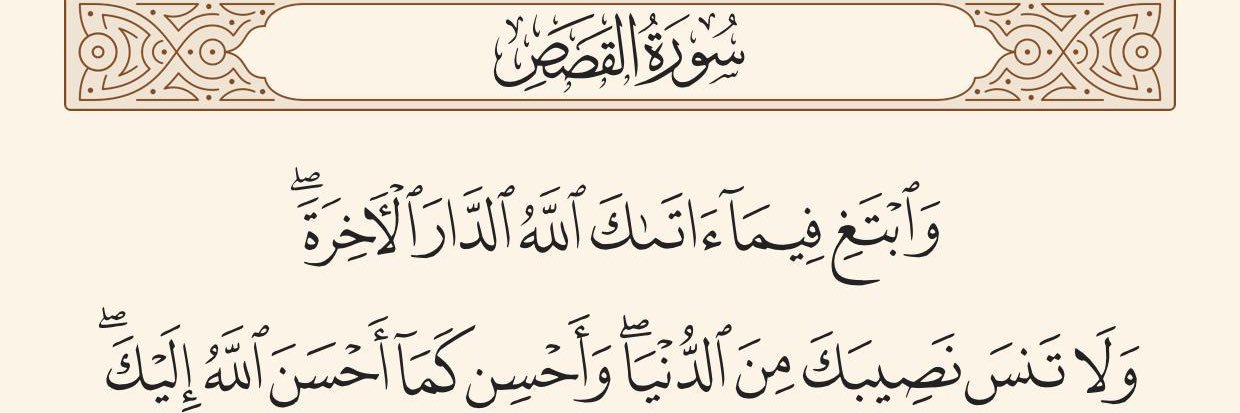 سُورَةُ القَصَصِ
وَٱبۡتَغِ فِيمَآ ءَاتَىٰكَ ٱللَّهُ ٱلدَّارَ ٱلۡأٓخِرَةَۖ
وَلَا تَنسَ نَصِيبَكَ مِنَ ٱلدُّنۡيَاۖ وَأَحۡسِن كَمَآ أَحۡسَنَ ٱللَّهُ إِلَيۡكَۖ